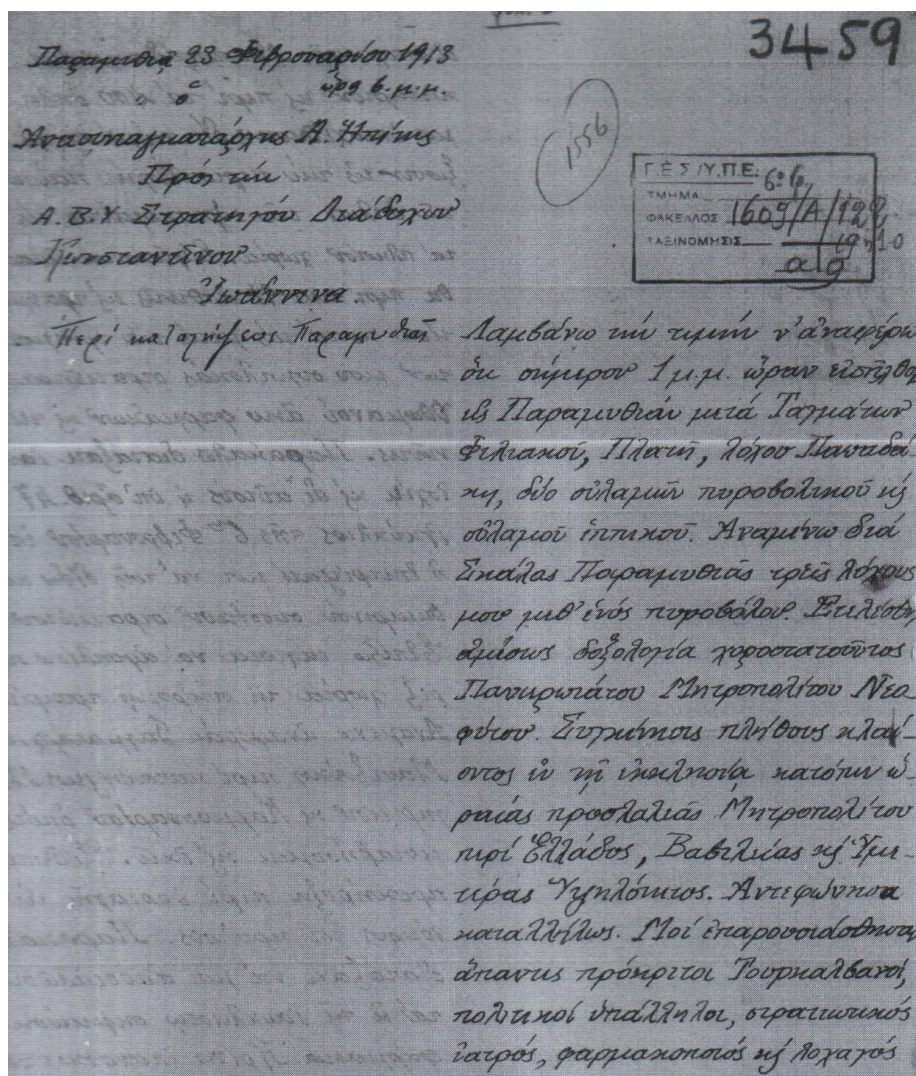 3459
Παραμυθιᾷ 23 Φεβρουαρίου 1913
ὥρᾳ 6 μ.μ.
ὁ
Ἀντισυνταγματάρχης Α. Ἠπίτης
Πρός τόν
Α.Β.Υ. Στρατηγόν Διάδοχον
Κωνσταντῖνον
Ἰωάννινα
Περί καταλήψεως Παραμυθιᾶς
1556
Γ.Ε.Σ/Υ.Π.Ε.
ΤΜΗΜΑ
ΦΑΚΕΛΛΟΣ 1609/Α/12
ΤΑΞΙΝΟΜΗΣΙΣ
Λαμβάνω τήν τιμήν ν' ἀναφέρω
ὅτι σήμερον 1 μ.μ. ὥραν εἰσῆλθον
εἰς Παραμυθιάν μετά Ταγμάτων
Φιλιακοῦ, Πλατῆ, λόχου Παπαδά-
κη, δύο οὐλαμῶν πυροβολικοῦ κ̣
οὐλαμοῦ ἱππικοῦ. Ἀναμένω διά
Σκάλας Παραμυθιᾶς τρεῖς λόχους
μου μεθ' ἑνός πυροβόλου. Ἐτελέσθη
ἀμέσως δοξολογία χοροστατοῦντος
Πανιερωτάτου Μητροπολίτου Νεο-
φύτου. Συγκίνησις πλήθους κλαί-
οντος ἐν τῇ ἐκκλησίᾳ κατόπιν ὡ-
ραίας προσλαλιᾶς Μητροπολίτου
περί Ἑλλάδος, Βασιλείας κ̣ Ὑμε-
τέρας Ὑψηλότητος. Ἀντεφώνησα
καταλλήλως. Μοί ἐπαρουσιάσθησαν
ἅπαντες πρόκριτοι Τουρκαλβανοί,
πολιτικοί ὑπάλληλοι, στρατιωτικός
ἰατρός, φαρμακοποιός κ̣ λοχαγός